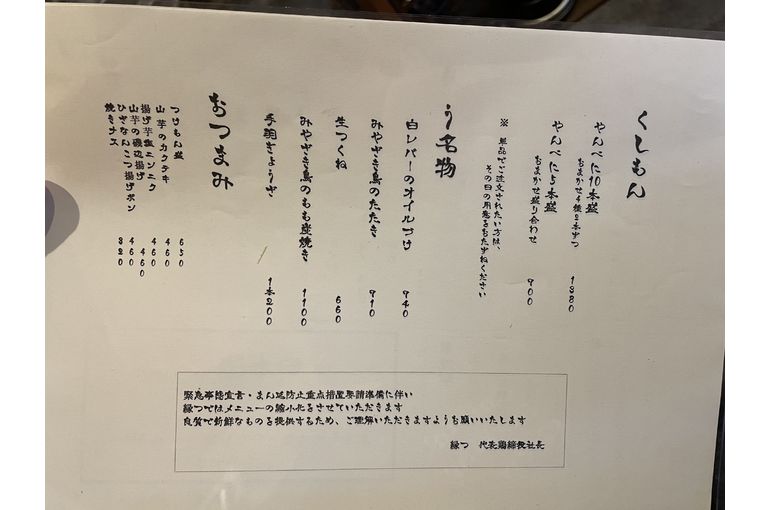 くしもん
やんべに10本盛
おまかせ4種2本ずつ
1880
やんべに5本盛
おまかせ盛り合わせ
900
※ 単品でご注文されたい方は、
その日の用意をおたずねください
う名物
白レバーのオイルづけ
940
みやざき鳥のたたき
910
生つくね
660
みやざき鳥のもも炭焼き
1100
手羽ぎょうざ
1本200
おつまみ
つけもん盛
650
山芋のカクテキ
460
揚げ芋塩ニンニク
460
山芋の磯辺揚げ
460
ひざなんこつ揚げポン
460
焼きナス
320
緊急事態宣言・まん延防止重点措置要請準備に伴い
縁つではメニューの縮小化をさせていただきます
良質で新鮮なものを提供するため、ご理解いただきますようお願いいたします
縁つ 代表鶏締役社長